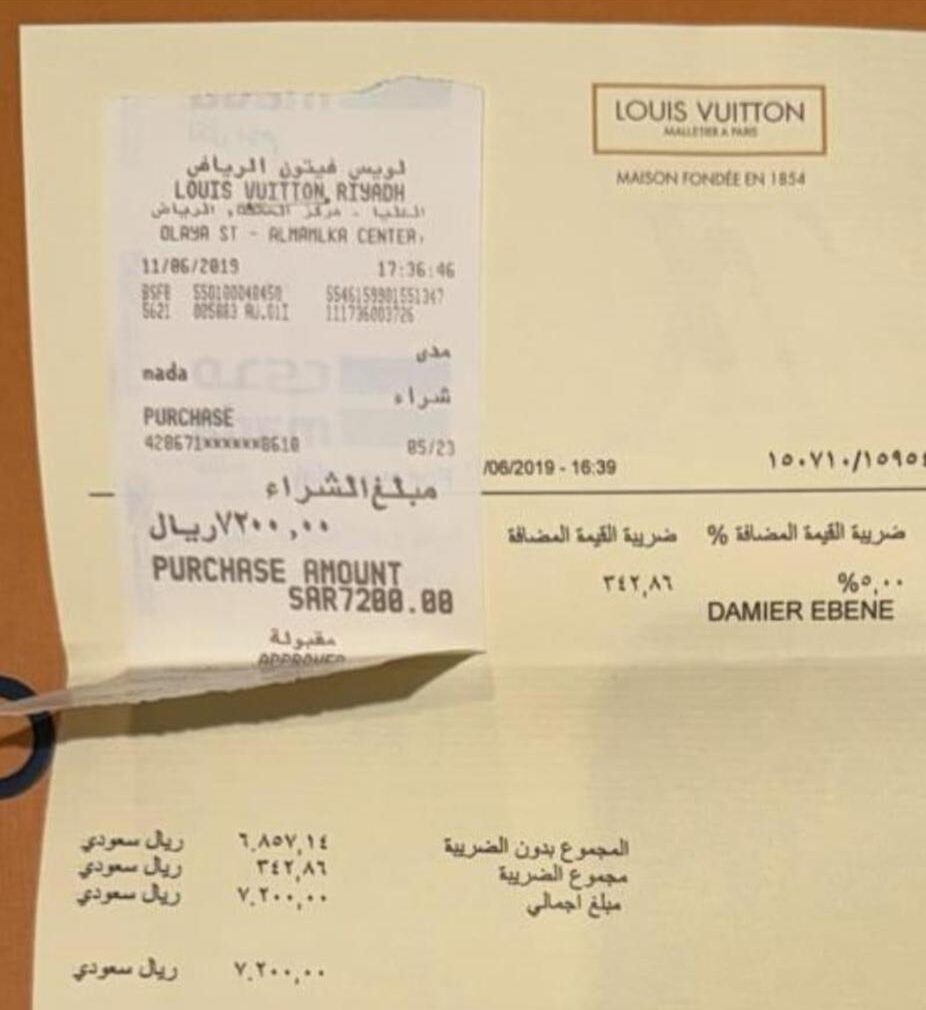 لويس فيتون الرياض
LOUIS VUITTON, RIYADH
العليا - مركز المملكة, الرياض
OLAYA ST - ALMAMLKA CENTER,
11/06/2019 17:36:46
BSFB 550100048450 5546159901551347
5621 005883 111736003726
مدى
mada
شراء
PURCHASE
428671******8610 05/23
مبلغ الشراء
٧٢٠٠,٠٠ ريال
PURCHASE AMOUNT
SAR7200.00
مقبولة
APPROVED
LOUIS VUITTON
MALLETIER A PARIS
MAISON FONDÉE EN 1854
/06/2019 - 16:39
ضريبة القيمة المضافة % ضريبة القيمة المضافة
%٥,٠٠ ٣٤٢,٨٦
DAMIER EBENE
المجموع بدون الضريبة ٦,٨٥٧,١٤ ريال سعودي
مجموع الضريبة ٣٤٢,٨٦ ريال سعودي
مبلغ اجمالي ٧,٢٠٠,٠٠ ريال سعودي
٧,٢٠٠,٠٠ ريال سعودي